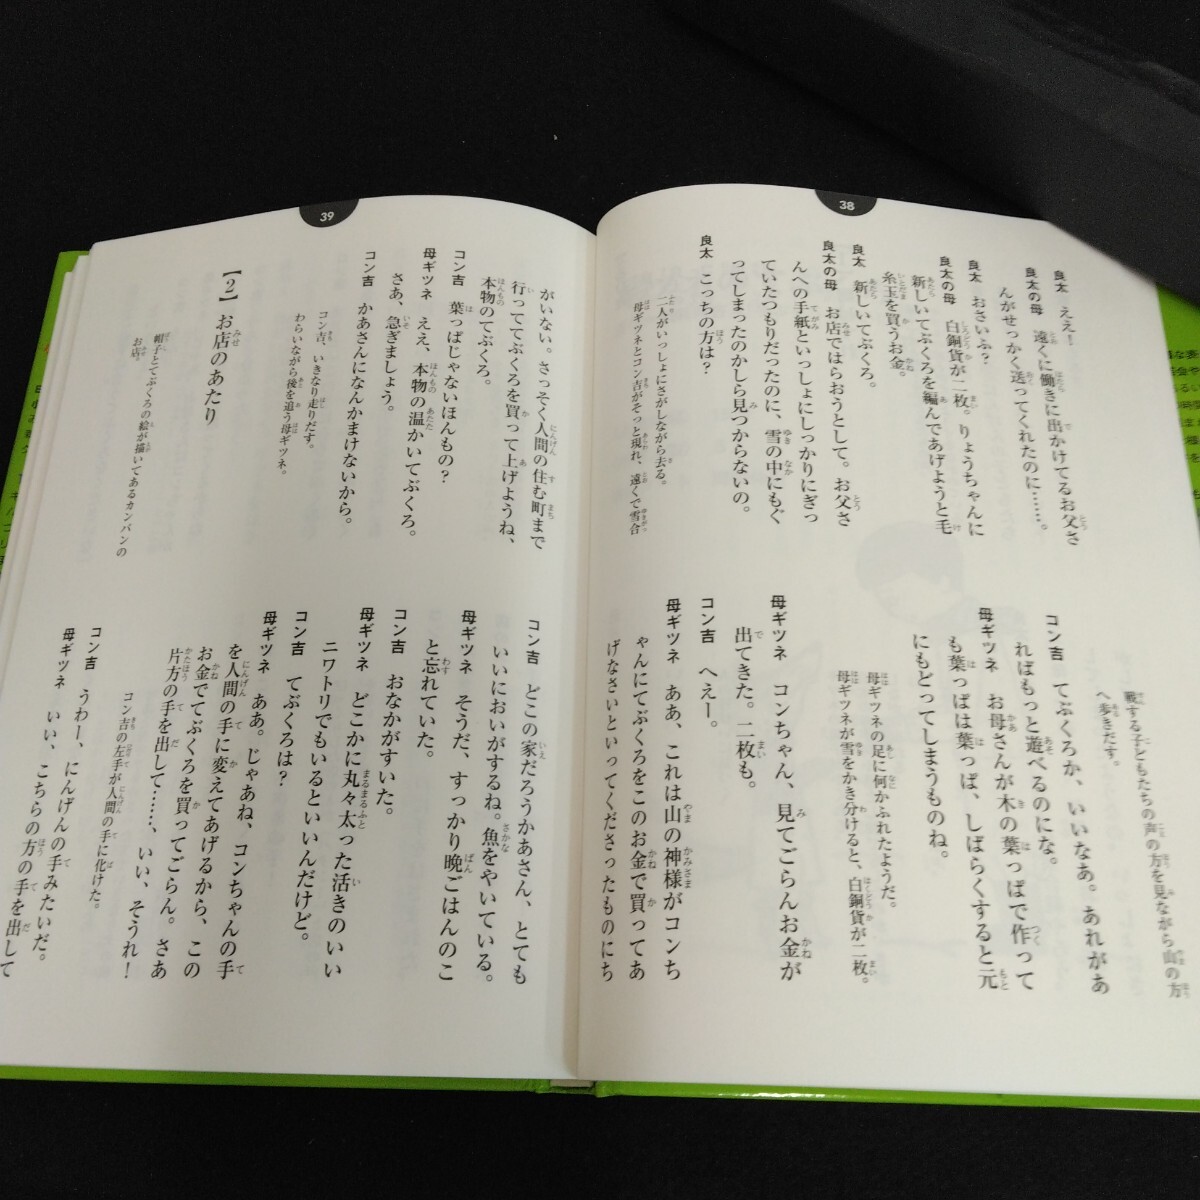 38
良太 ええ!
良太の母 遠くに働きに出かけてるお父さ
んがせっかく送ってくれたのに……。
良太 おさいふ?
良太の母 白銅貨が二枚。りょうちゃんに
新しいてぶくろを編んであげようと毛
糸玉を買うお金。
良太 新しいてぶくろ。
良太の母 お店ではらおうとして。お父さ
んへの手紙といっしょにしっかりにぎっ
ていたつもりだったのに、雪の中にもぐ
ってしまったのかしら見つからないの。
良太 こっちの方は?
二人がいっしょにさがしながら去る。
母ギツネとコン吉がそっと現れ、遠くで雪合
戦する子どもたちの声の方を見ながら山の方
へ歩きだす。
コン吉 てぶくろか、いいなあ。あれがあ
ればもっと遊べるのにな。
母ギツネ お母さんが木の葉っぱで作って
も葉っぱは葉っぱ、しばらくすると元
にもどってしまうものね。
母ギツネの足に何かふれたようだ。
母ギツネが雪をかき分けると、白銅貨が二枚。
母ギツネ コンちゃん、見てごらんお金が
出てきた。二枚も。
コン吉 へえー。
母ギツネ ああ、これは山の神様がコンち
ゃんにてぶくろをこのお金で買ってあ
げなさいといってくださったものにち
39
がいない。さっそく人間の住む町まで
行っててぶくろを買って上げようね、
本物のてぶくろ。
コン吉 葉っぱじゃないほんもの?
母ギツネ ええ、本物の温かいてぶくろ。
さあ、急ぎましょう。
コン吉 かあさんになんかまけないから。
コン吉、いきなり走りだす。
わらいながら後を追う母ギツネ。
【2】お店のあたり
帽子とてぶくろの絵が描いてあるカンバンの
お店。
コン吉 どこの家だろうかあさん、とても
いいにおいがするね。魚をやいている。
母ギツネ そうだ、すっかり晩ごはんのこ
と忘れていた。
コン吉 おなかがすいた。
母ギツネ どこかに丸々太った活きのいい
ニワトリでもいるといいんだけど。
コン吉 てぶくろは?
母ギツネ ああ。じゃあね、コンちゃんの手
を人間の手に変えてあげるから、この
お金でてぶくろを買ってごらん。さあ
片方の手を出して……、いい、そうれ!
コン吉の左手が人間の手に化けた。
コン吉 うわー、にんげんの手みたいだ。
母ギツネ いい、こちらの方の手を出して